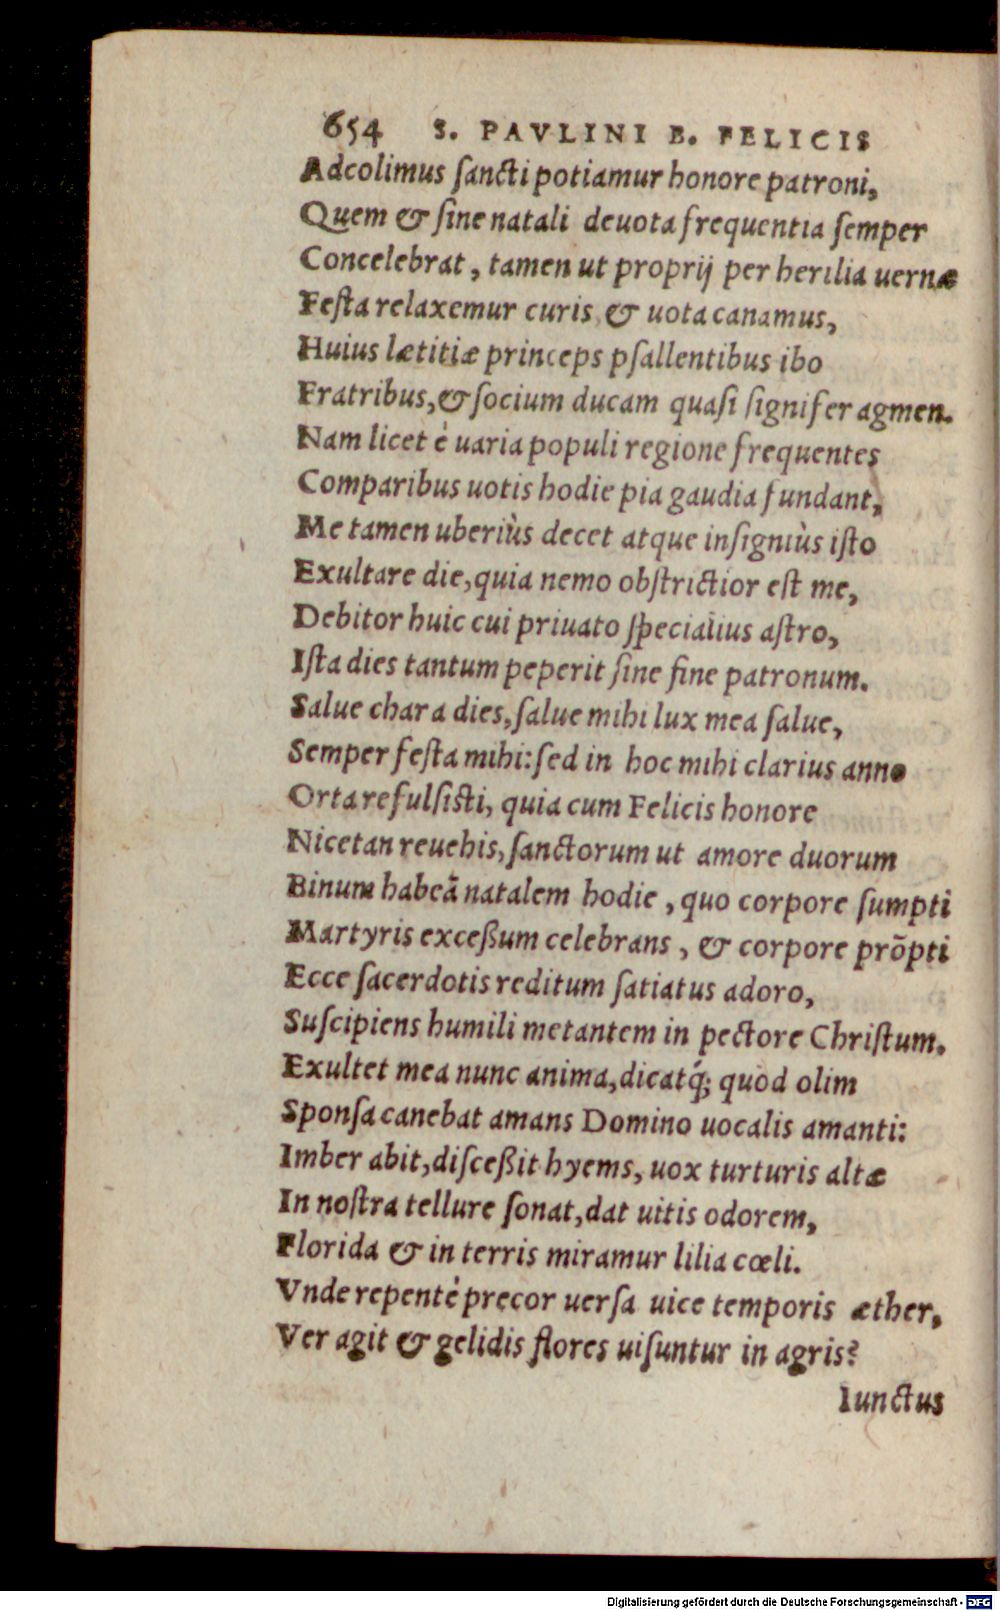 654 S. PAVLINI B. FELICIS
Adcolimus ſancti potiamur honore patroni,
Quem & ſine natali deuota frequentia ſemper
Concelebrat, tamen ut proprij per herilia uernæ
Feſta relaxemur curis & uota canamus,
Huius lætitiæ princeps pſallentibus ibo
Fratribus, & ſocium ducam quaſi ſignifer agmen.
Nam licet è uaria populi regione frequentes
Comparibus uotis hodie pia gaudia fundant,
Me tamen uberiùs decet atque inſigniùs iſto
Exultare die, quia nemo obſtrictior eſt me,
Debitor huic cui priuato ſpecialius aſtro,
Iſta dies tantum peperit ſine fine patronum.
Salue chara dies, ſalue mihi lux mea ſalue,
Semper feſta mihi: ſed in hoc mihi clarius anno
Orta refulſiſti, quia cum Felicis honore
Nicetan reuehis, ſanctorum ut amore duorum
Binum habeā natalem hodie, quo corpore ſumpti
Martyris exceßum celebrans, & corpore prōpti
Ecce ſacerdotis reditum ſatiatus adoro,
Suſcipiens humili metantem in pectore Chriſtum.
Exultet mea nunc anima, dicatq́; quod olim
Sponſa canebat amans Domino uocalis amanti:
Imber abit, diſceßit hyems, uox turturis altæ
In noſtra tellure ſonat, dat uitis odorem,
Florida & in terris miramur lilia cœli.
Vnde repentè precor uerſa uice temporis æther,
Ver agit & gelidis flores uiſuntur in agris?
Iunctus
Digitalisierung gefördert durch die Deutsche Forschungsgemeinschaft - DFG